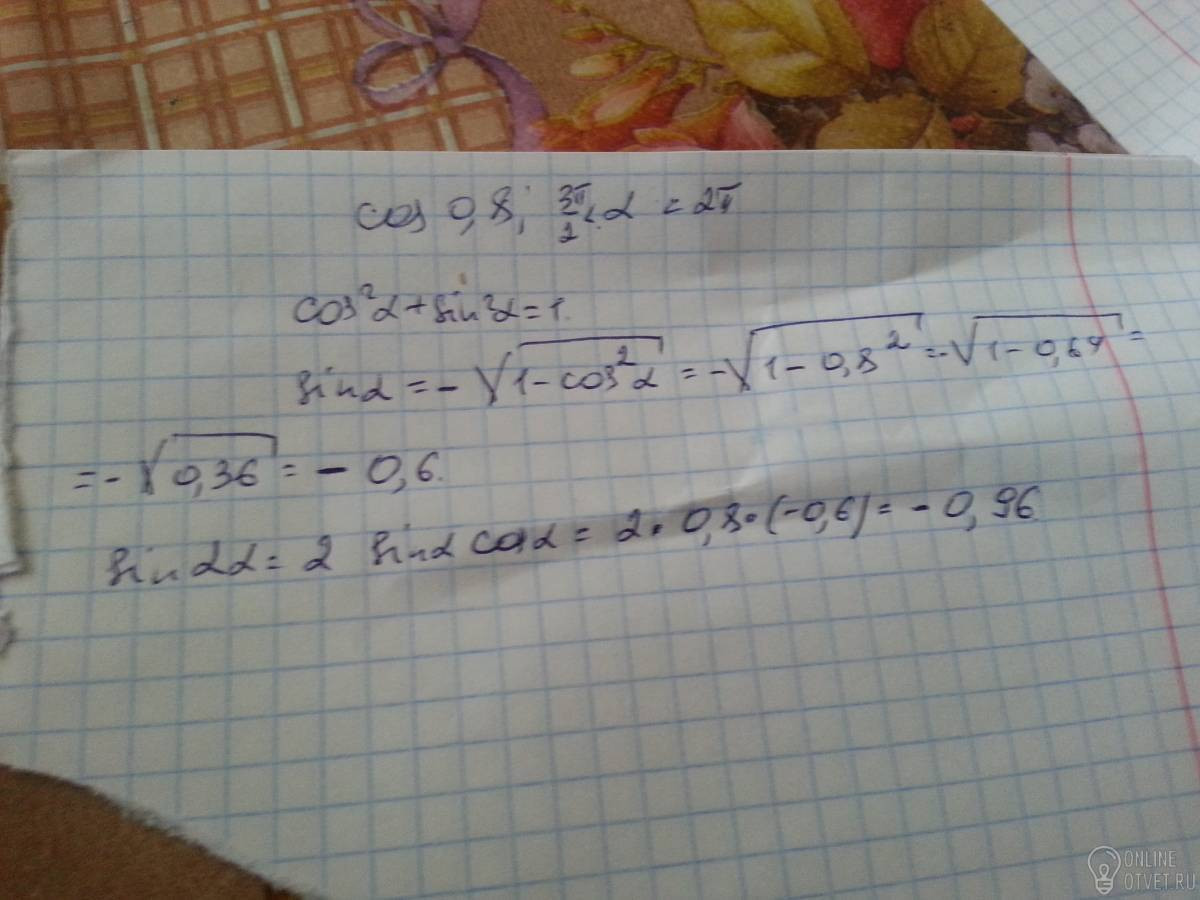 cos 0,8; 3π/2 < α < 2π
cos²α + sin²α = 1.
sin α = - √(1 - cos²α) = - √(1 - 0,8²) = - √(1 - 0,64) =
= - √(0,36) = - 0,6.
sin 2α = 2 sin α cos α = 2 · 0,8 · (-0,6) = - 0,96.
ONLINE
OTVET.RU